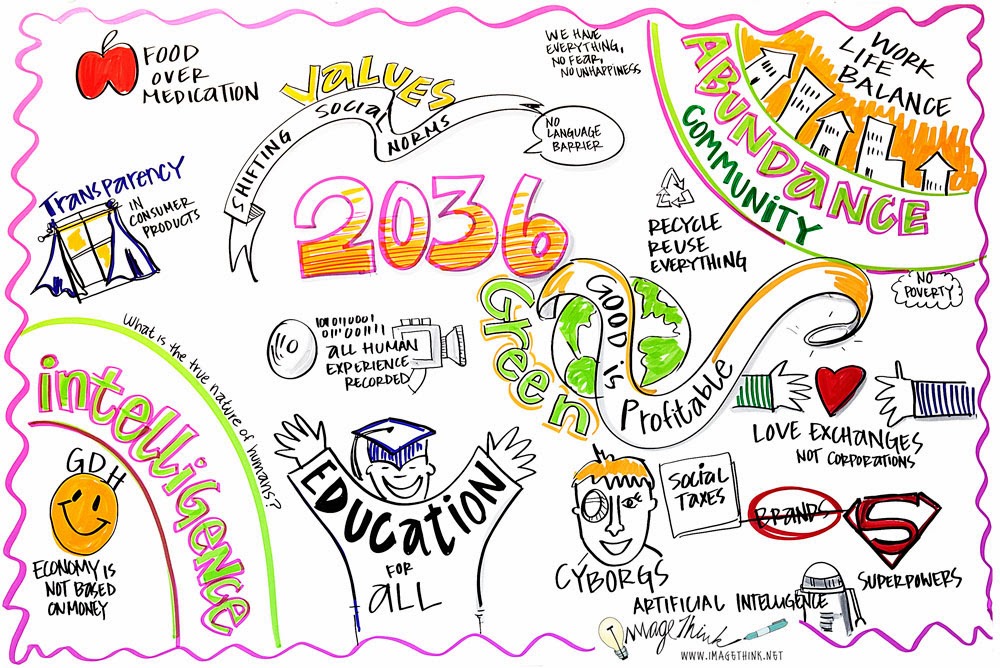 FOOD
OVER
MEDICATION
VALUES
SHIFTING SOCIAL
NORMS
NO
LANGUAGE
BARRIER
WE HAVE
EVERYTHING,
NO FEAR,
NO UNHAPPINESS
ABUNDANCE
COMMUNITY
WORK
LIFE
BALANCE
TRANSPARENCY
IN
CONSUMER
PRODUCTS
2036
RECYCLE
REUSE
EVERYTHING
NO
POVERTY
What is the true nature of humans?
intelligence
GDH
ECONOMY IS
NOT BASED
ON MONEY
101011000 1
011100111
ALL HUMAN
EXPERIENCE
RECORDED
Green
GOOD IS
Profitable
LOVE EXCHANGES
NOT CORPORATIONS
EDUCATION
FOR
ALL
CYBORGS
SOCIAL
TAXES
BRANDS
S
SUPERPOWERS
ARTIFICIAL INTELLIGENCE
ImageThink
WWW.IMAGETHINK.NET